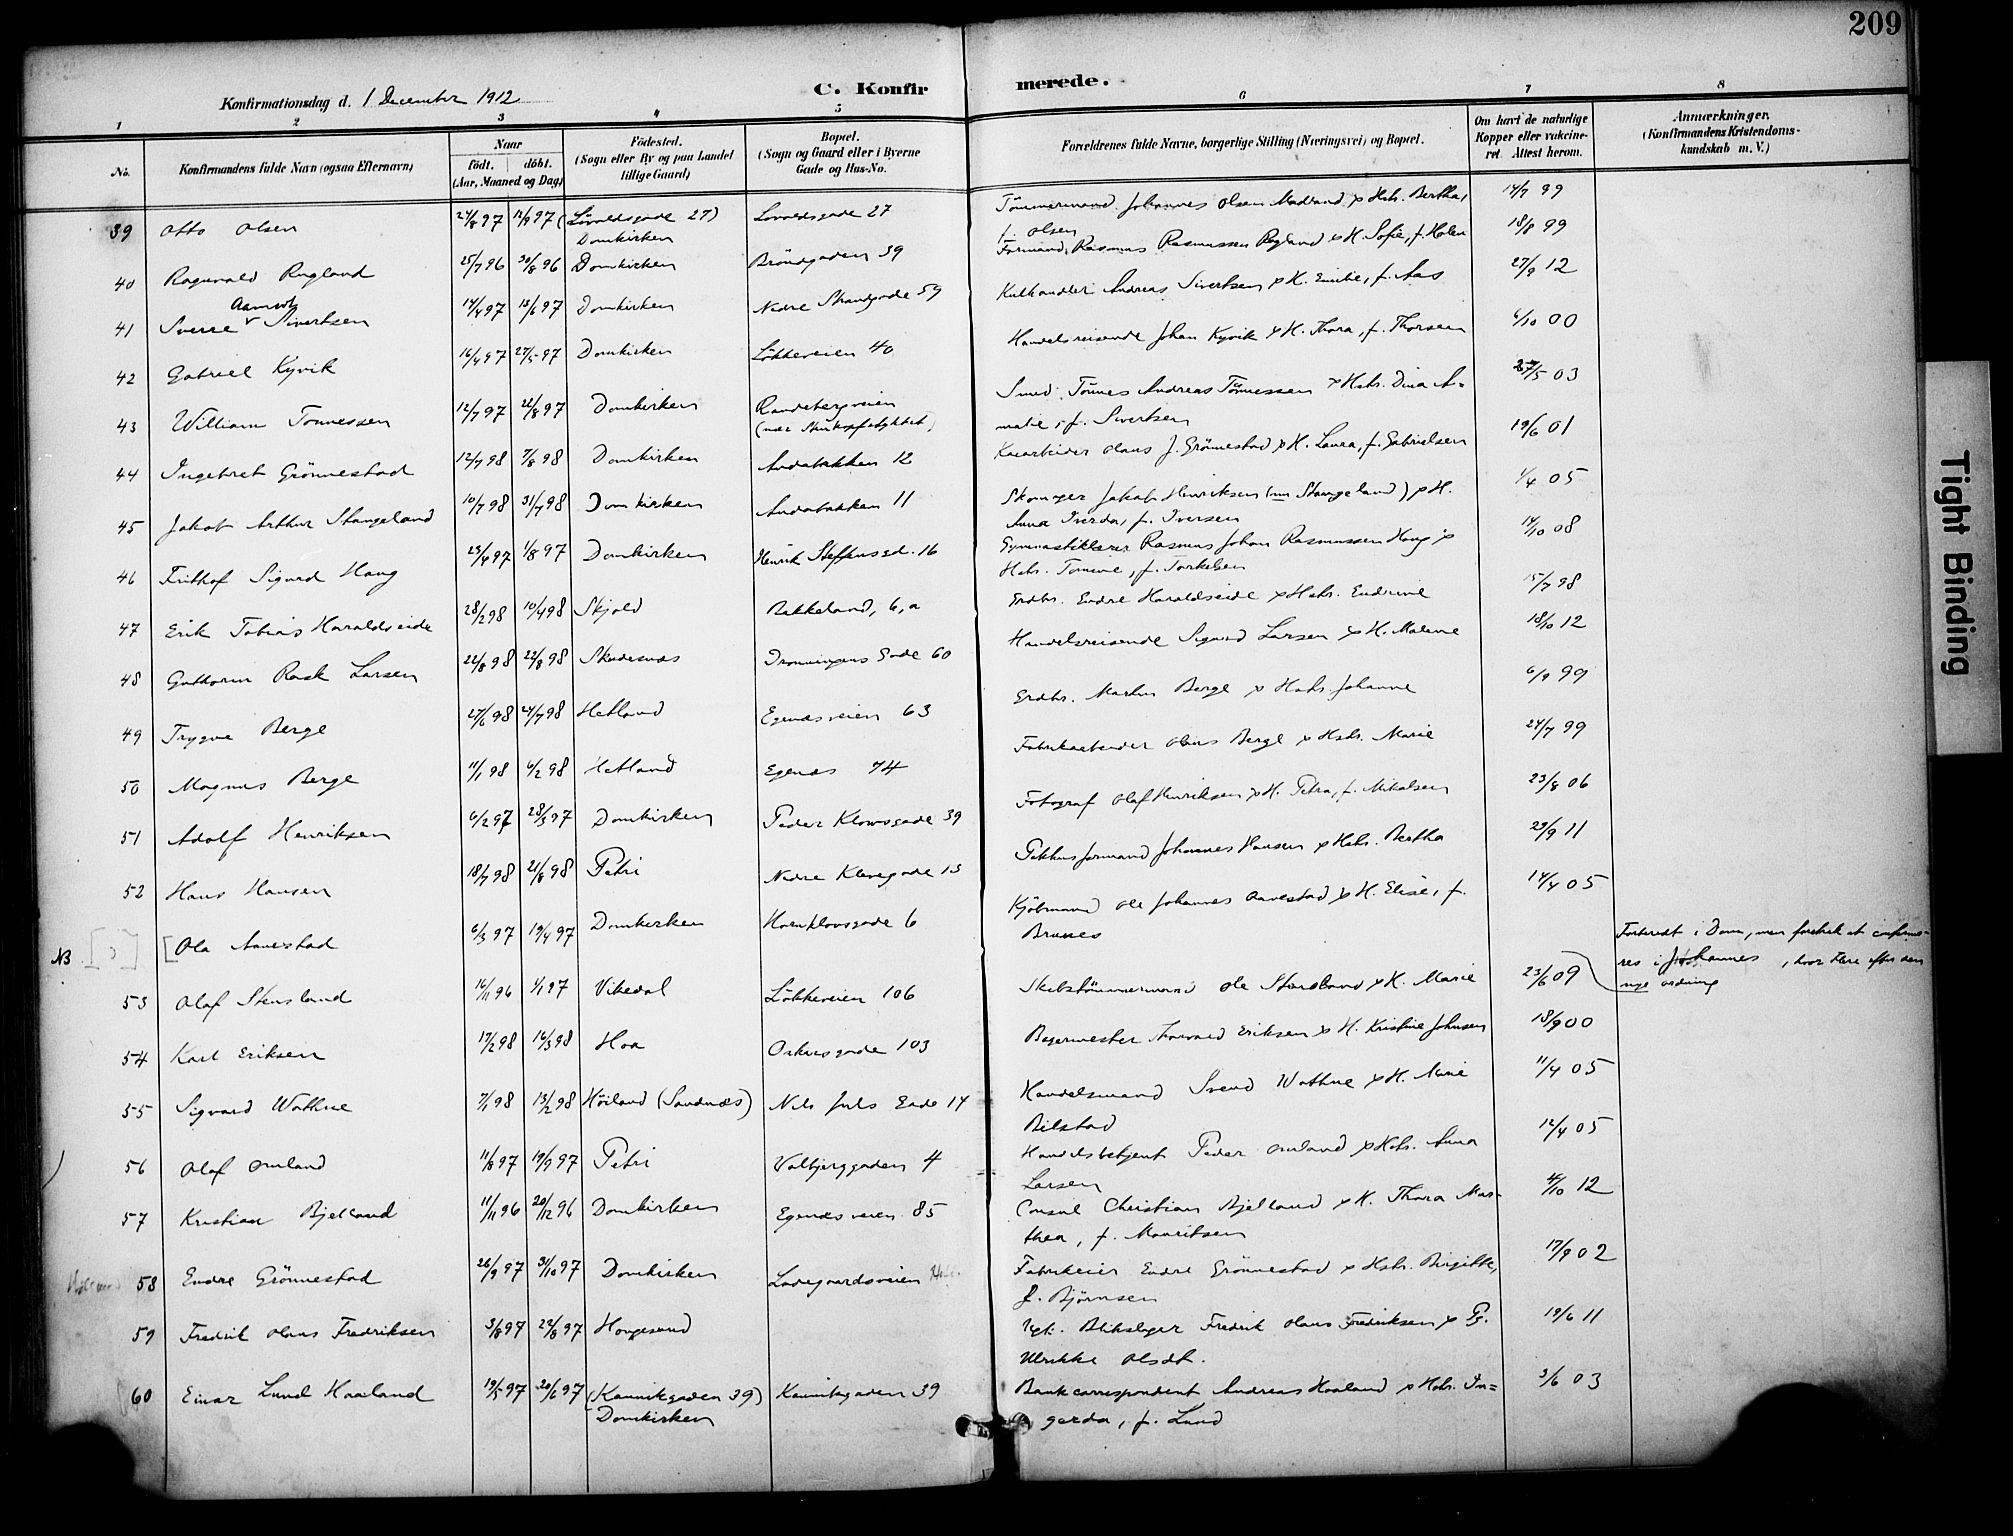 209
C. Konfirmerede.
Konfirmationsdag d. 1 December 1912
1 2 3 4 5 6 7 8
No.
Konfirmandens fulde Navn (ogsaa Efternavn)
Naar
födt. döbt.
(Aar, Maaned og Dag)
Födested.
(Sogn eller By og paa Landet
tillige Gaard)
Bopæl.
(Sogn og Gaard eller i Byerne
Gade og Hus-No.
Forældrenes fulde Navne, borgerlige Stilling (Næringsvei) og Bopæl.
Om havt de naturlige
Kopper eller vakcineret
Attest herom.
Anmærkninger.
(Konfirmandens Kristendomskundskab
m. V.)
39 Otto Olsen 27/8 97 12/9 97 (Lövoldsgade 27) Domkirken Lövoldsgade 27 Tömmermand Johannes Olsen Madland x Hstr. Bertha, f. Olsen 14/7 99
40 Ragnvald Rugland 25/7 96 30/8 96 Domkirken Bröndgaden 39 Formand Rasmus Rasmussen Rugland x H. Sofie, f. Holen 18/8 99
41 Sverre Sivertsen 14/4 97 13/6 97 Domkirken Nedre Strandgade 59 Kulhandler Andreas Sivertsen x H. Emilie, f. Aas 27/9 12
42 Gabriel Kyvik 16/4 97 27/5 97 Domkirken Lökkeveien 40 Handelsreisende Johan Kyvik x H. Thora, f. Thorsen 6/10 00
43 William Tönnessen 12/7 97 22/8 97 Domkirken Randebergveien Smed Tönnes Andreas Tönnessen x Hstr. Dina Amalie, f. Sivertsen 27/5 03
44 Ingebret Grönnestad 12/7 98 7/8 98 Domkirken Andabakken 12 Kaiarbeider Olaus J. Grönnestad x H. Laura, f. Gabrielsen 19/6 01
45 Jakob Arthur Stangeland 10/7 98 31/7 98 Domkirken Andabakken 11 Skomager Jakob Henriksen (nu Stangeland) x H. Anna Iverda, f. Iversen 1/4 05
46 Frithof Sigurd Haug 23/4 97 1/8 97 Domkirken Henrik Steffensgd. 16 Gymnastiklærer Rasmus Johan Rasmussen Haug x Hstr. Tomine, f. Torkelsen 14/10 08
47 Erik Tobias Haraldseide 28/2 98 10/4 98 Skjold Bakkeland, 6, a Grdbr. Endre Haraldseide x Hstr. Endrine 15/7 98
48 Guttorm Rask Larsen 22/8 98 Skudesnæs Dronningens Gade 60 Handelsreisende Sigurd Larsen x H. Malene 18/10 12
49 Trygve Berge 27/6 98 24/7 98 Hetland Egenæsveien 63 Grdbr. Martin Berge x Hstr. Johanne 6/9 99
50 Magnus Berge 11/1 98 6/2 98 Hetland Egenæs 74 Fabrikarbeider Olaus Berge x Hstr. Marie 24/7 99
51 Adolf Henriksen 6/2 97 28/3 97 Domkirken Peder Klowsgade 39 Fotograf Olaf Henriksen x H. Petra, f. Nikolsen 23/8 06
52 Hans Hansen 18/7 98 21/8 98 Petri Nedre Klevegade 13 Pakhusformand Johannes Hansen x Hstr. Bertha 29/9 11
NB [3] [Ola Aanestad 6/3 97 19/4 97 Domkirken Hornklovsgade 6 Kjöbmand Ole Johannes Aanestad x H. Elise, f. Brunes 14/4 05
Forberedt i Dom, men foretrak at confirmeres i Johannes, hvor flere efter den nye ordning
53 Olaf Stensland 16/11 96 1/1 97 Vikedal Lökkeveien 106 Skibstömmermand Ole Stensland x H. Marie 23/6 09
54 Karl Eriksen 17/2 98 16/3 98 Haa Oskarsgade 103 Bagermester Thorvard Eriksen x H. Kristine Johnsen 18/9 00
55 Sigvard Wathne 7/1 98 13/2 98 Höiland (Sandnæs) Nils Juls Gade 14 Handelsmand Svend Wathne x H. Marie Bilstad 11/4 05
56 Olaf Omland 11/8 97 19/9 97 Petri Valbjerggaden 4 Handelsbetjent Peder Omland x Hstr. Anna Larsen 12/4 05
57 Kristian Bjelland 11/11 96 20/12 96 Domkirken Egenæsveien 85 Consul Christian Bjelland x H. Thora Marthea, f. Mauritsen 4/10 12
58 Endre Grönnestad 26/9 97 31/10 97 Domkirken Ladegaardsveien Fabrikeier Endre Grönnestad x Hstr. Birgitte, f. Björnsen 17/9 02
59 Fredrik Olaus Fredriksen 3/8 97 22/8 97 Haugesund Ugk. Blikslager Fredrik Olaus Fredriksen x Pg. Ulrikke Olsdt. 19/6 11
60 Einar Lund Haaland 19/5 97 20/6 97 (Kannikgaden 39) Domkirken Kannikgaden 39 Bankcorrespondent Andreas Haaland x Hstr. Ingerda, f. Lund 3/6 03
Tight Binding